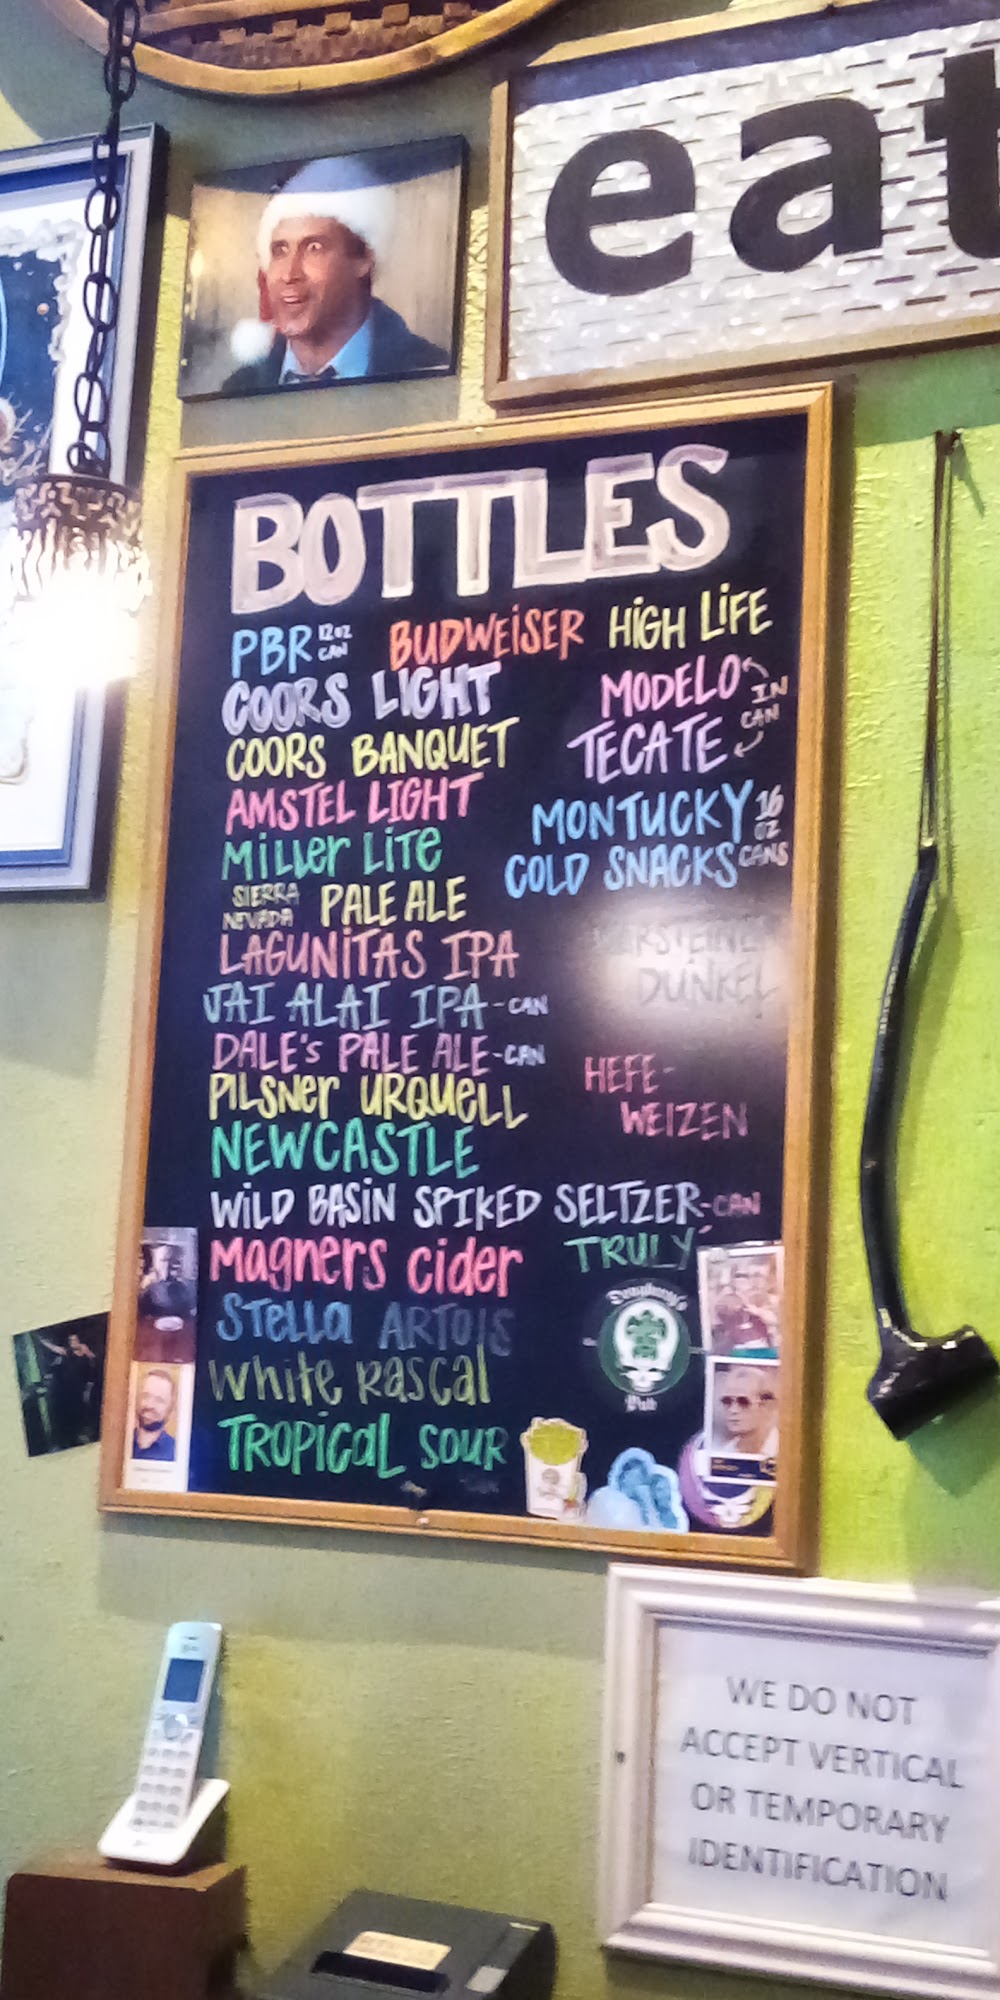 eat
BOTTLES
PBR 12oz CAN BUDWEISER HIGH LIFE
COORS LIGHT
MODELO
IN CAN
COORS BANQUET
TECATE
AMSTEL LIGHT
MONTUCKY 16 OZ CANS
COLD SNACKS
Miller Lite
SIERRA NEVADA PALE ALE
LAGUNITAS IPA
DUNKEL
JAI ALAI IPA - CAN
DALE's PALE ALE - CAN
HEFE-
WEIZEN
PILSNER URQUELL
NEWCASTLE
WILD BASIN SPIKED SELTZER - CAN
Magners cider
TRULY
Stella ARTOIS
White Rascal
TROPICAL SOUR
Pub
WE DO NOT
ACCEPT VERTICAL
OR TEMPORARY
IDENTIFICATION